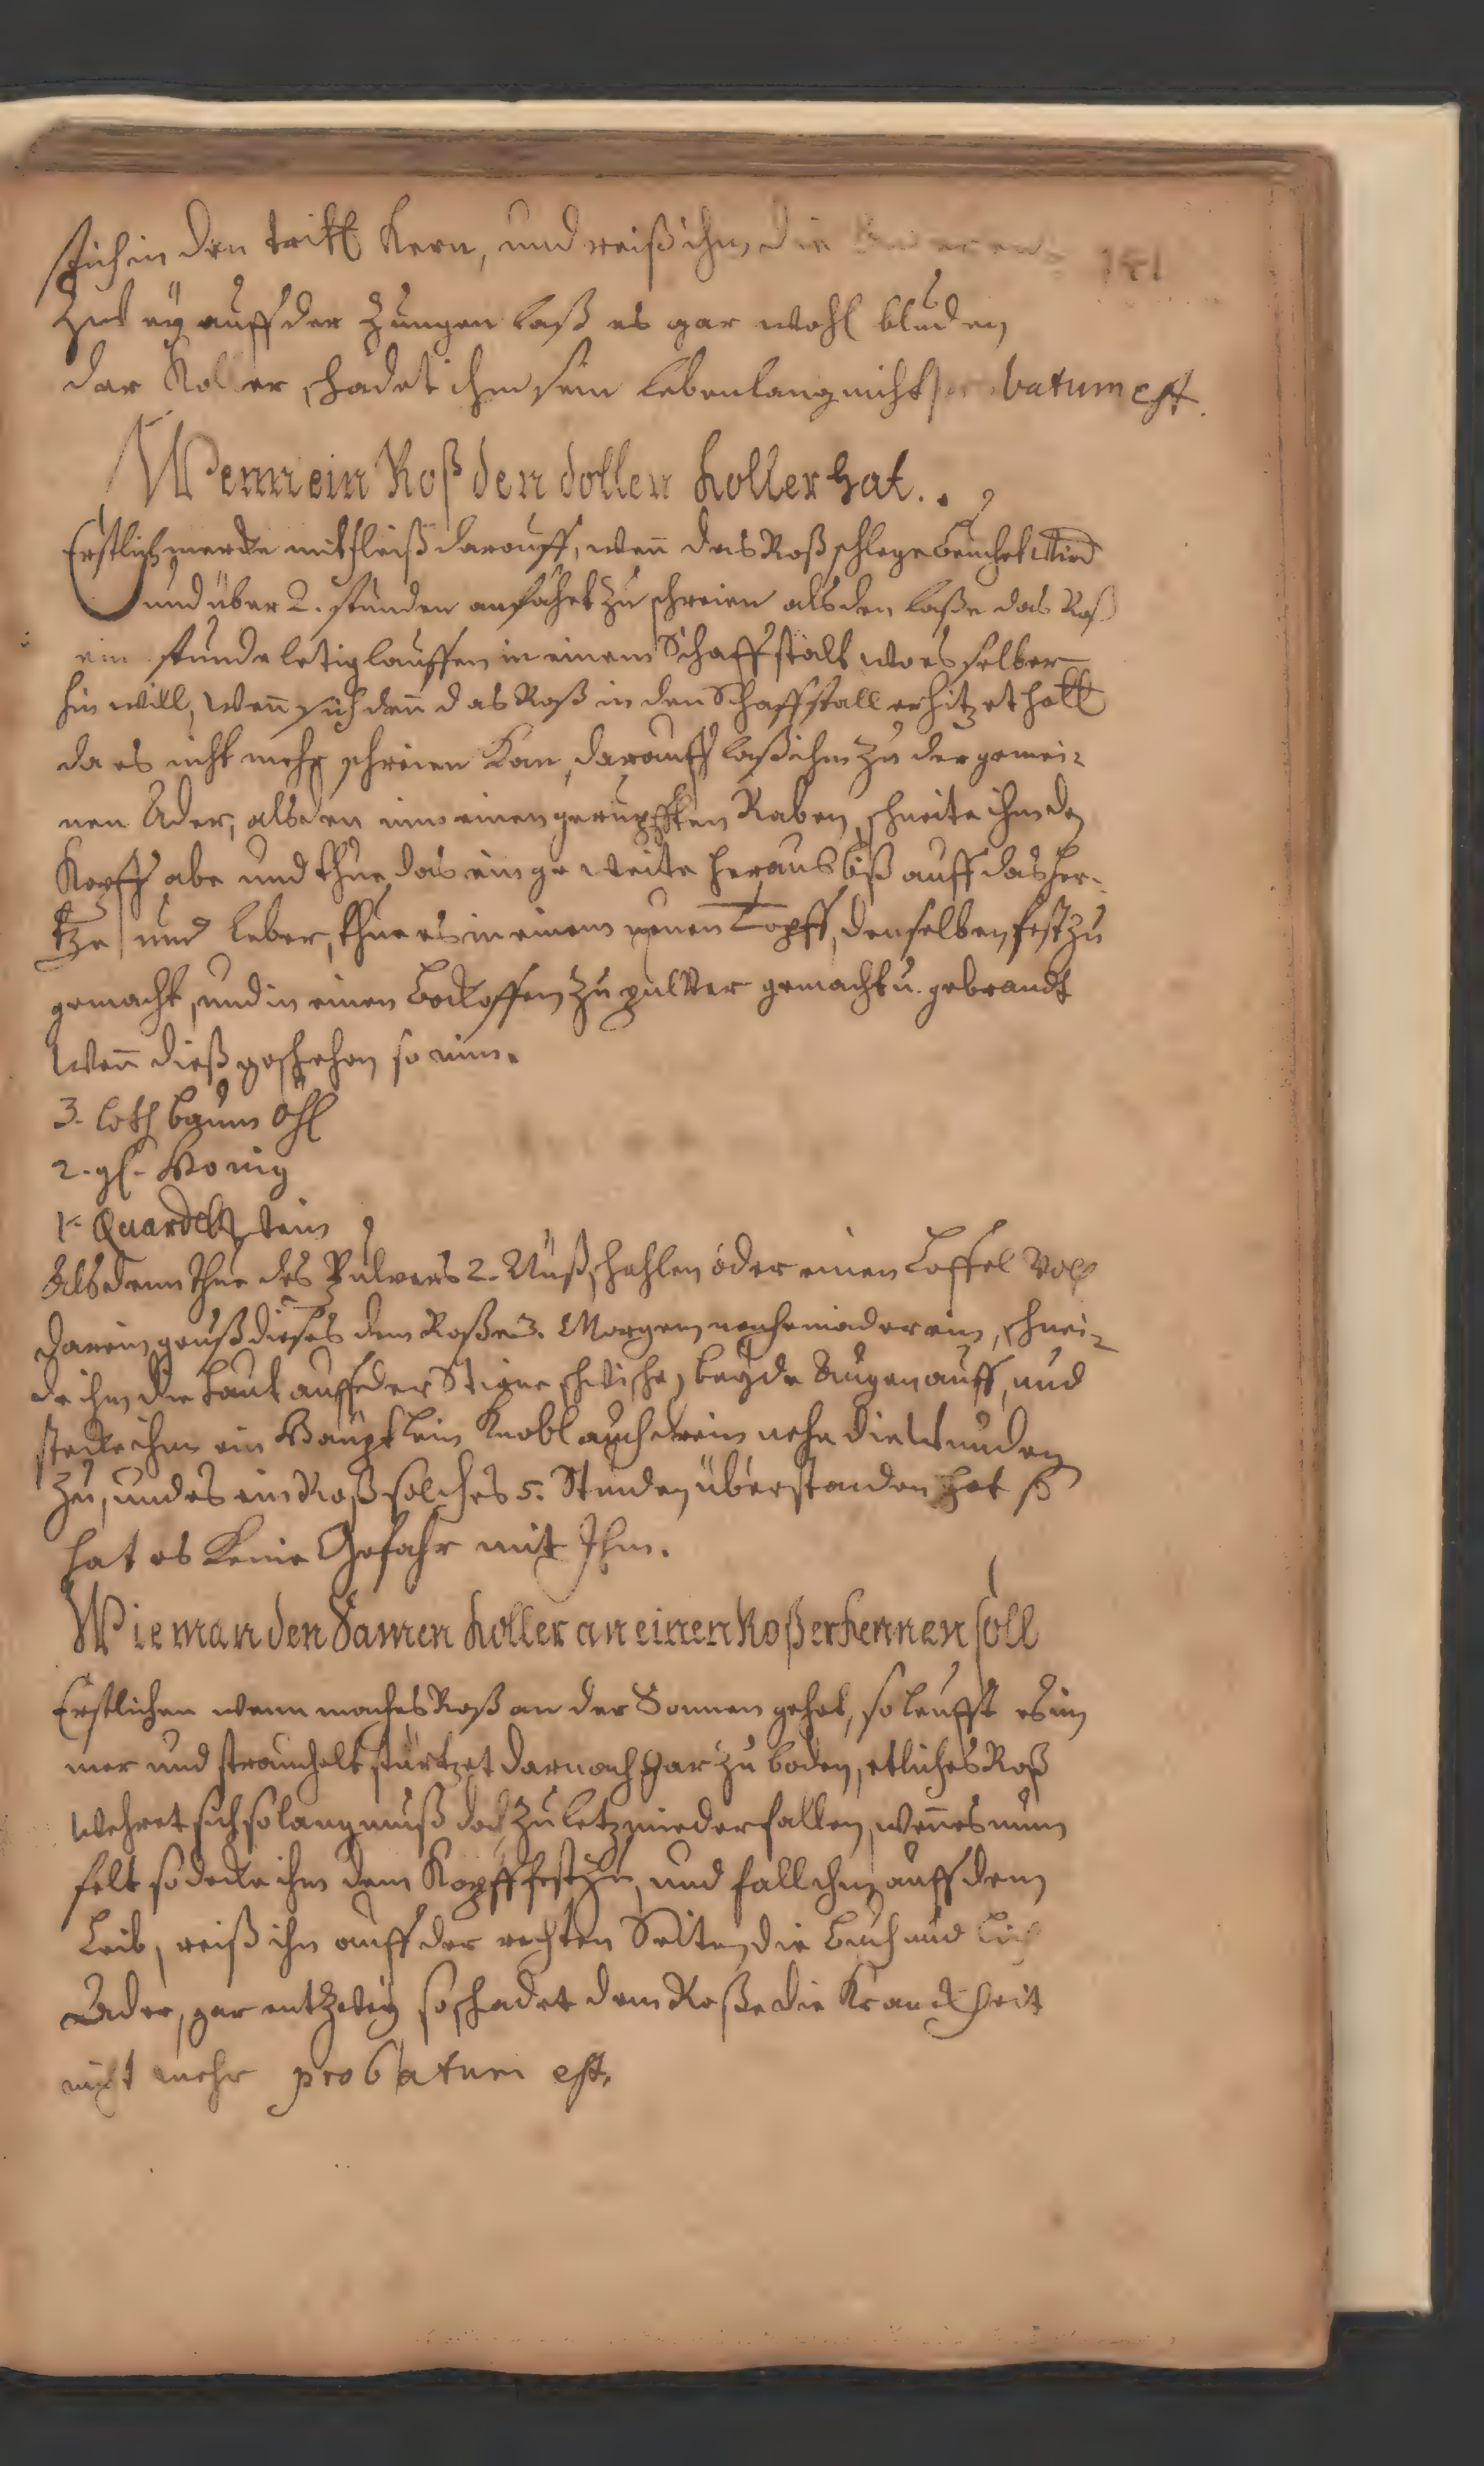 stich in den dritt Kern, und reiß ihm die
141
Zwey auff der Zungen laß es gar wohl bluden
der Koller schadet ihm sein lebenlang nicht batum est.
Wenn ein Roß den dollen Koller hat..
Erstlich mercke mit fleiß darauff, wenn das Roß schlege wird
und über 2. stunden anfähet zu schreien als den laße das Roß
ein stunde letig lauffen in einem Schaffstalt wo es selber
hin will, wen̄ sich den̄ das Roß in den Schaffstall erhitzet hatt
da es nicht mehr schreien Kan, darauff laß ihm zu der gemei-
nen Ader, als den nim einen gerupfften Raben, schneite ihm den
Kopff abe und thue das eingeweite heraus biß auff das her-
tze und leber, thue es in einem neuen Topff, denselben fest zu
gemacht, und in einen Backoffen zu pulver gemacht u. gebrandt
Wen̄ dieß geschehen so nim.
3. loth baum öhl
2. gl. Honig
1. Quardel
Als denn thue des Pulvers 2. Nußschahlen oder einen Loffel voll
darein, geuß dieses dem Roße 3. Morgen nacheinader ein, schnei-
de ihm die Haut auff der Stirne schwischen beyde Augen auff, und
stecke ihm ein Häuptlein Knoblauch drein nehe die Wunden
zu, und es ein Roß solches 5. Stunden überstanden hat so
hat es Keine Gefahr mit Ihm.
Wie man den Samen Koller an einen Roß erkennen soll
Erstlichen wenn maches Roß an der Sonnen gehet, so leufft es im
mer und strauchelt stürtzet darnach gar zu boden, etliches Roß
wehret sich so lang muß doch zu letz niederfallen, wen̄ es nun
felt so decke ihm dem Kopff fest zu, und fall ihm auff dem
Leib, reiß ihn auff der rechten Seiten die und
Ader, gar entzwey so schadet dem Roße die Kranckheit
nicht mehr probatum est.